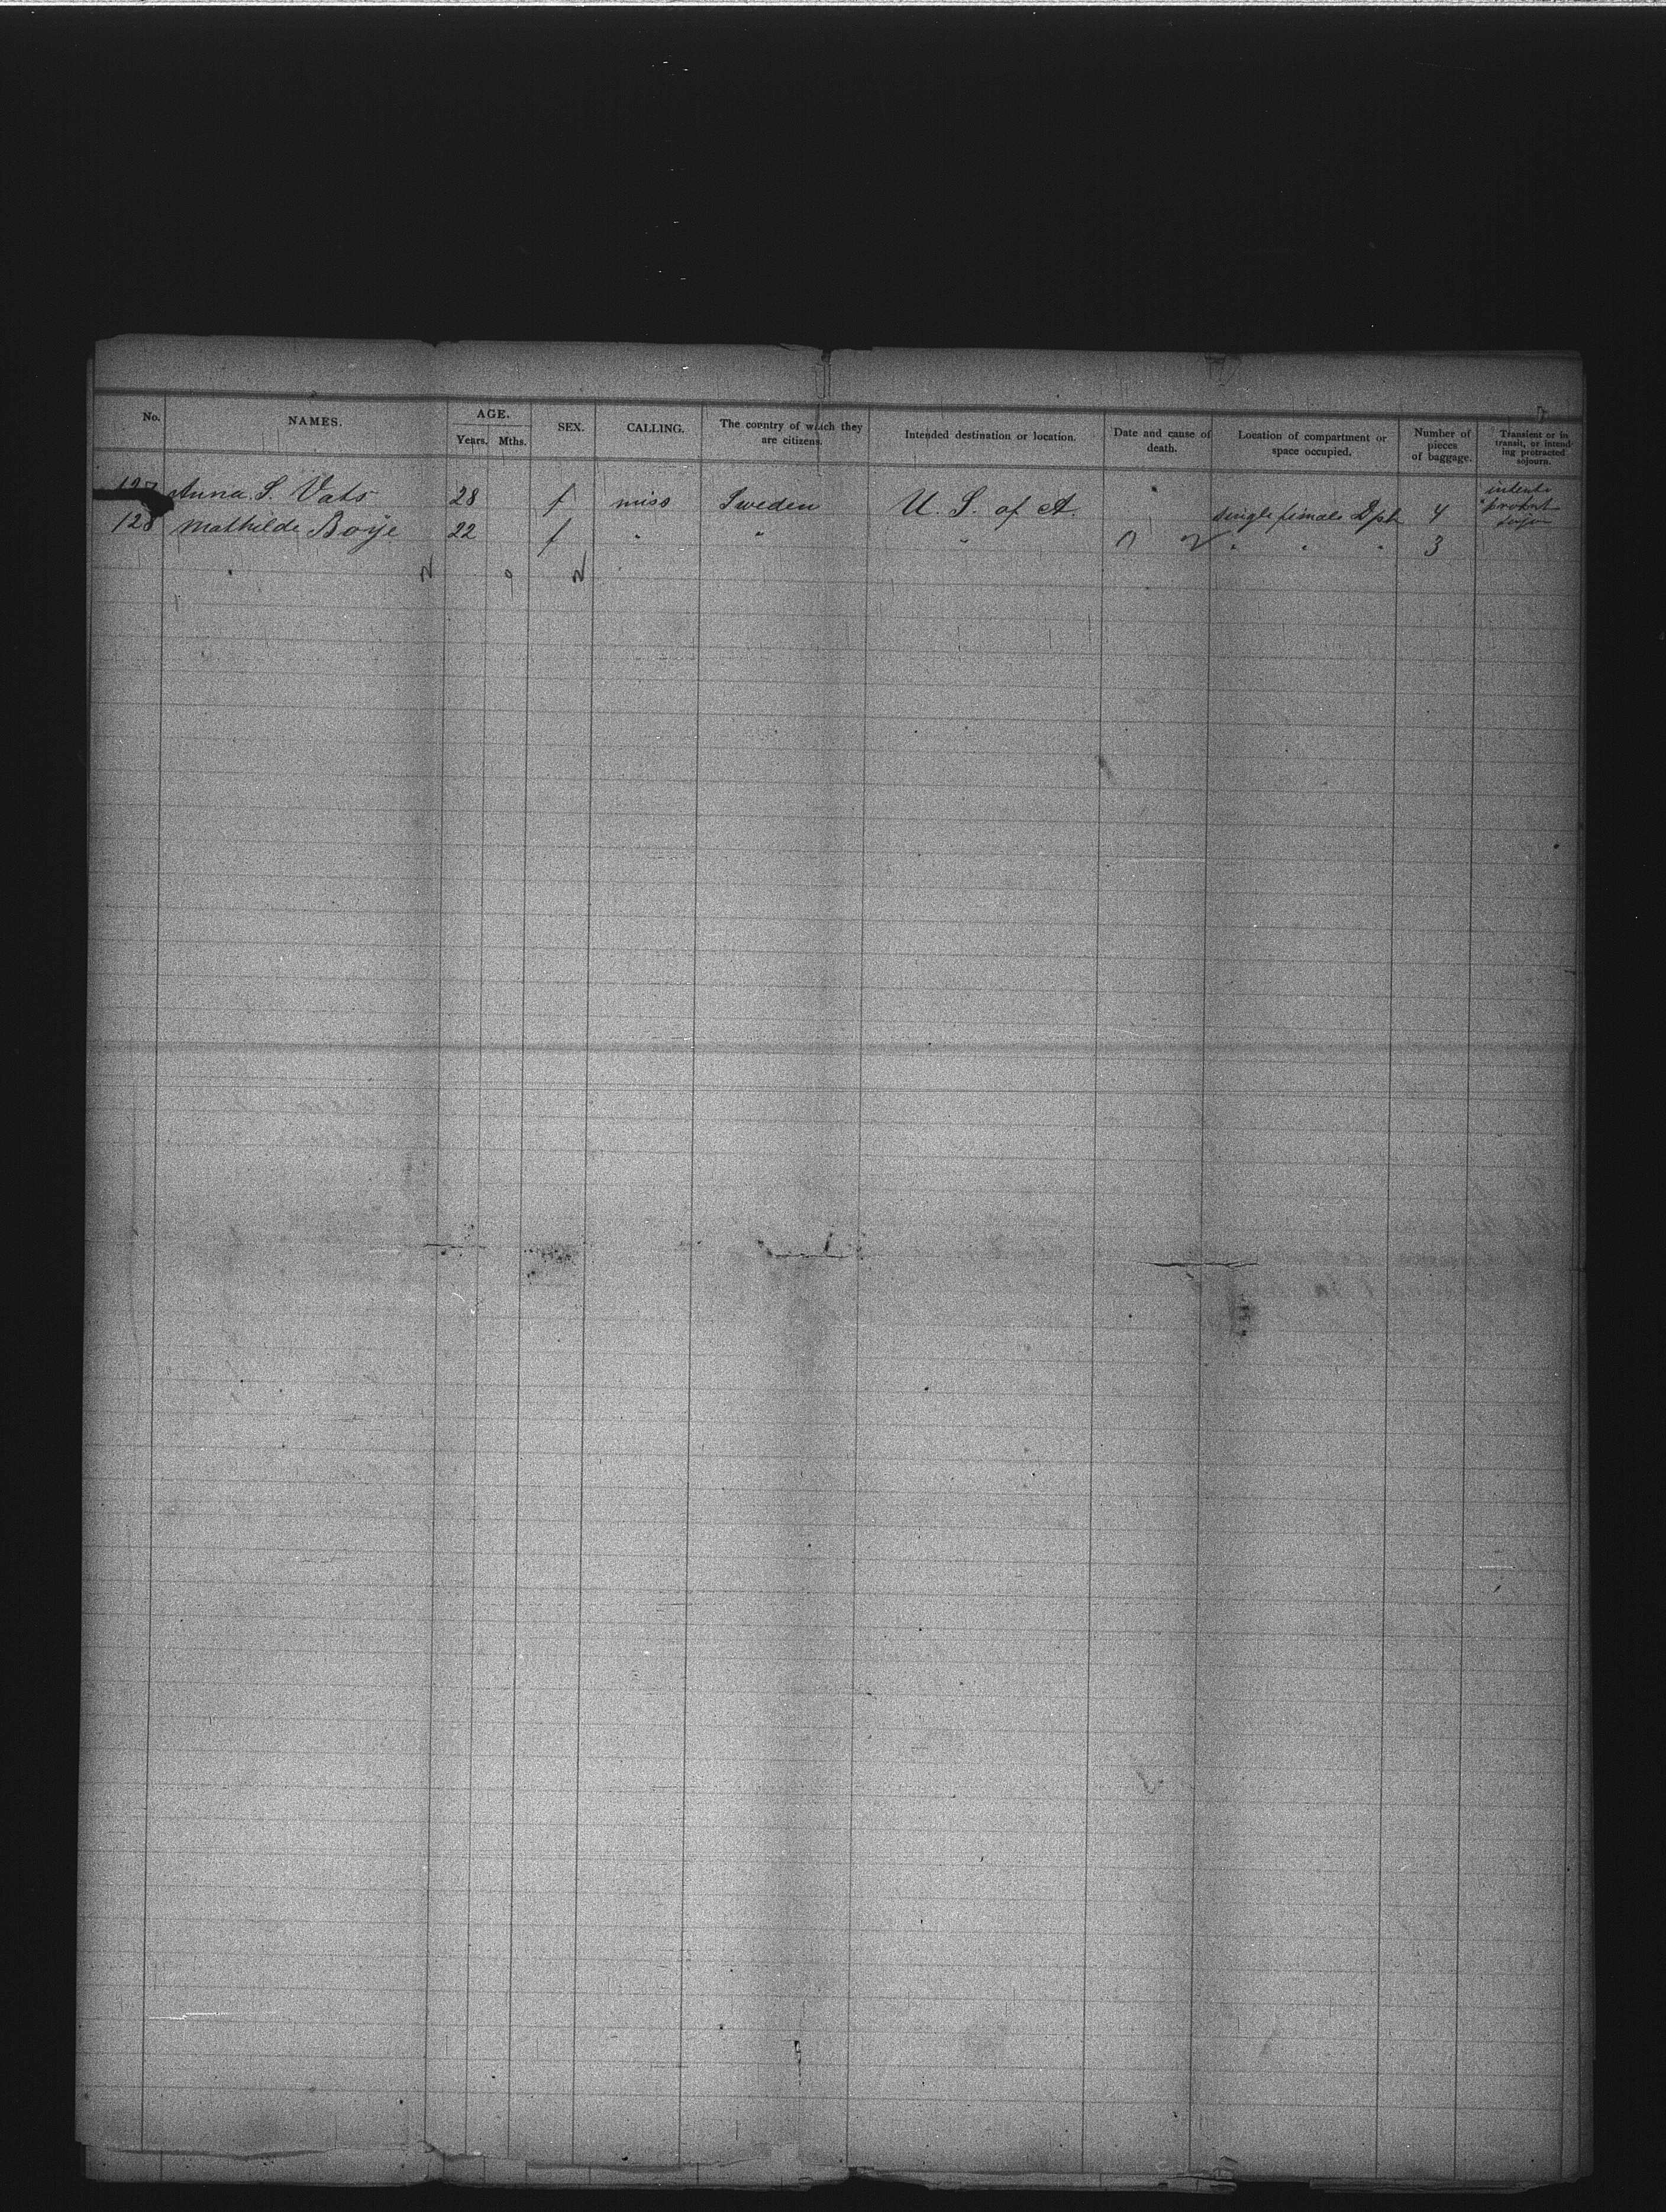 No. NAMES. AGE. Years. Mths. SEX. CALLING. The country of which they are citizens. Intended destination or location. Date and cause of death. Location of compartment or space occupied. Number of pieces of baggage. Transient or in transit, or intending protracted sojourn.
127 Anna S. Vats 28 f miss Sweden U. S. of A. single female Dpt 4
128 Mathilde Boije 22 f " " " " " " 3